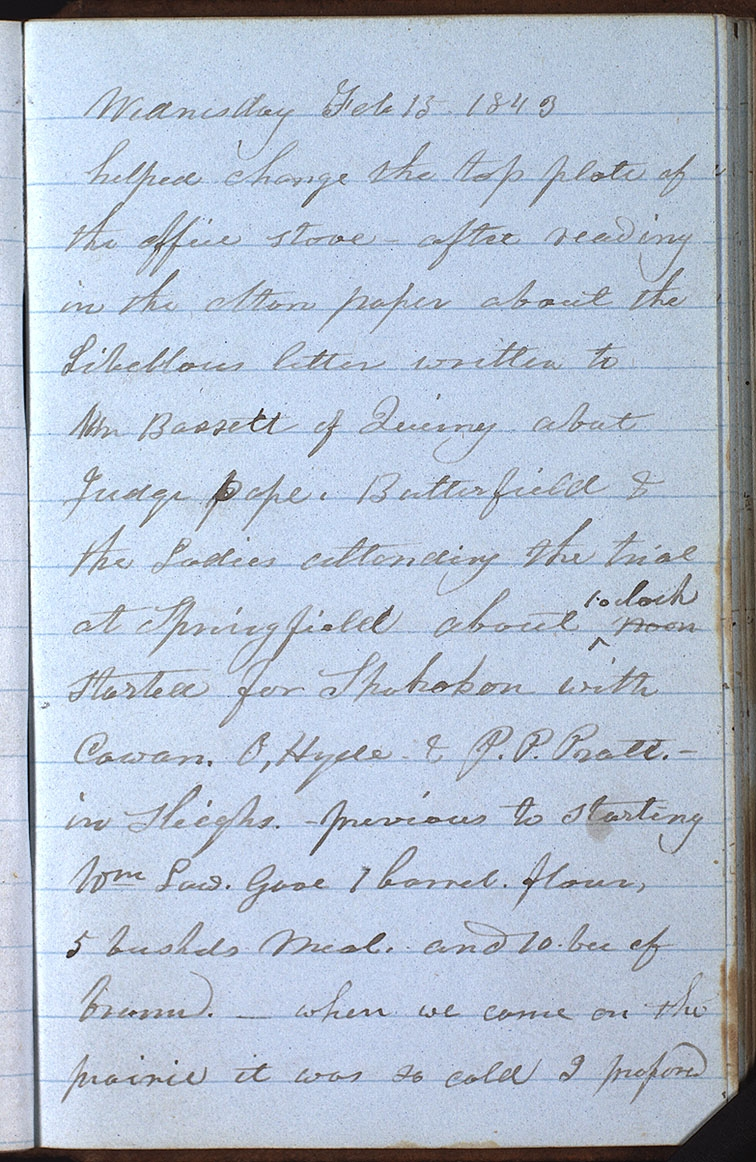 Wednesday Feb 15. 1843
helped change the top plate of
the office stove - after reading
in the Alton paper about the
Libellous letter written to
Mr Bassett of Quincy about
Judge pope. Butterfield &
the Ladies attending the trial
at Springfield about ^ 1 o clock noon
started for Shokokon with
Cowan. O, Hyde - & P. P. Pratt. -
in Sleighs. - previous to starting
Wm Law. Gave 1 barrel. flour,
5 bushels Meal. and 10. bu of
brann. - when we come on the
prairie it was so cold I proposed